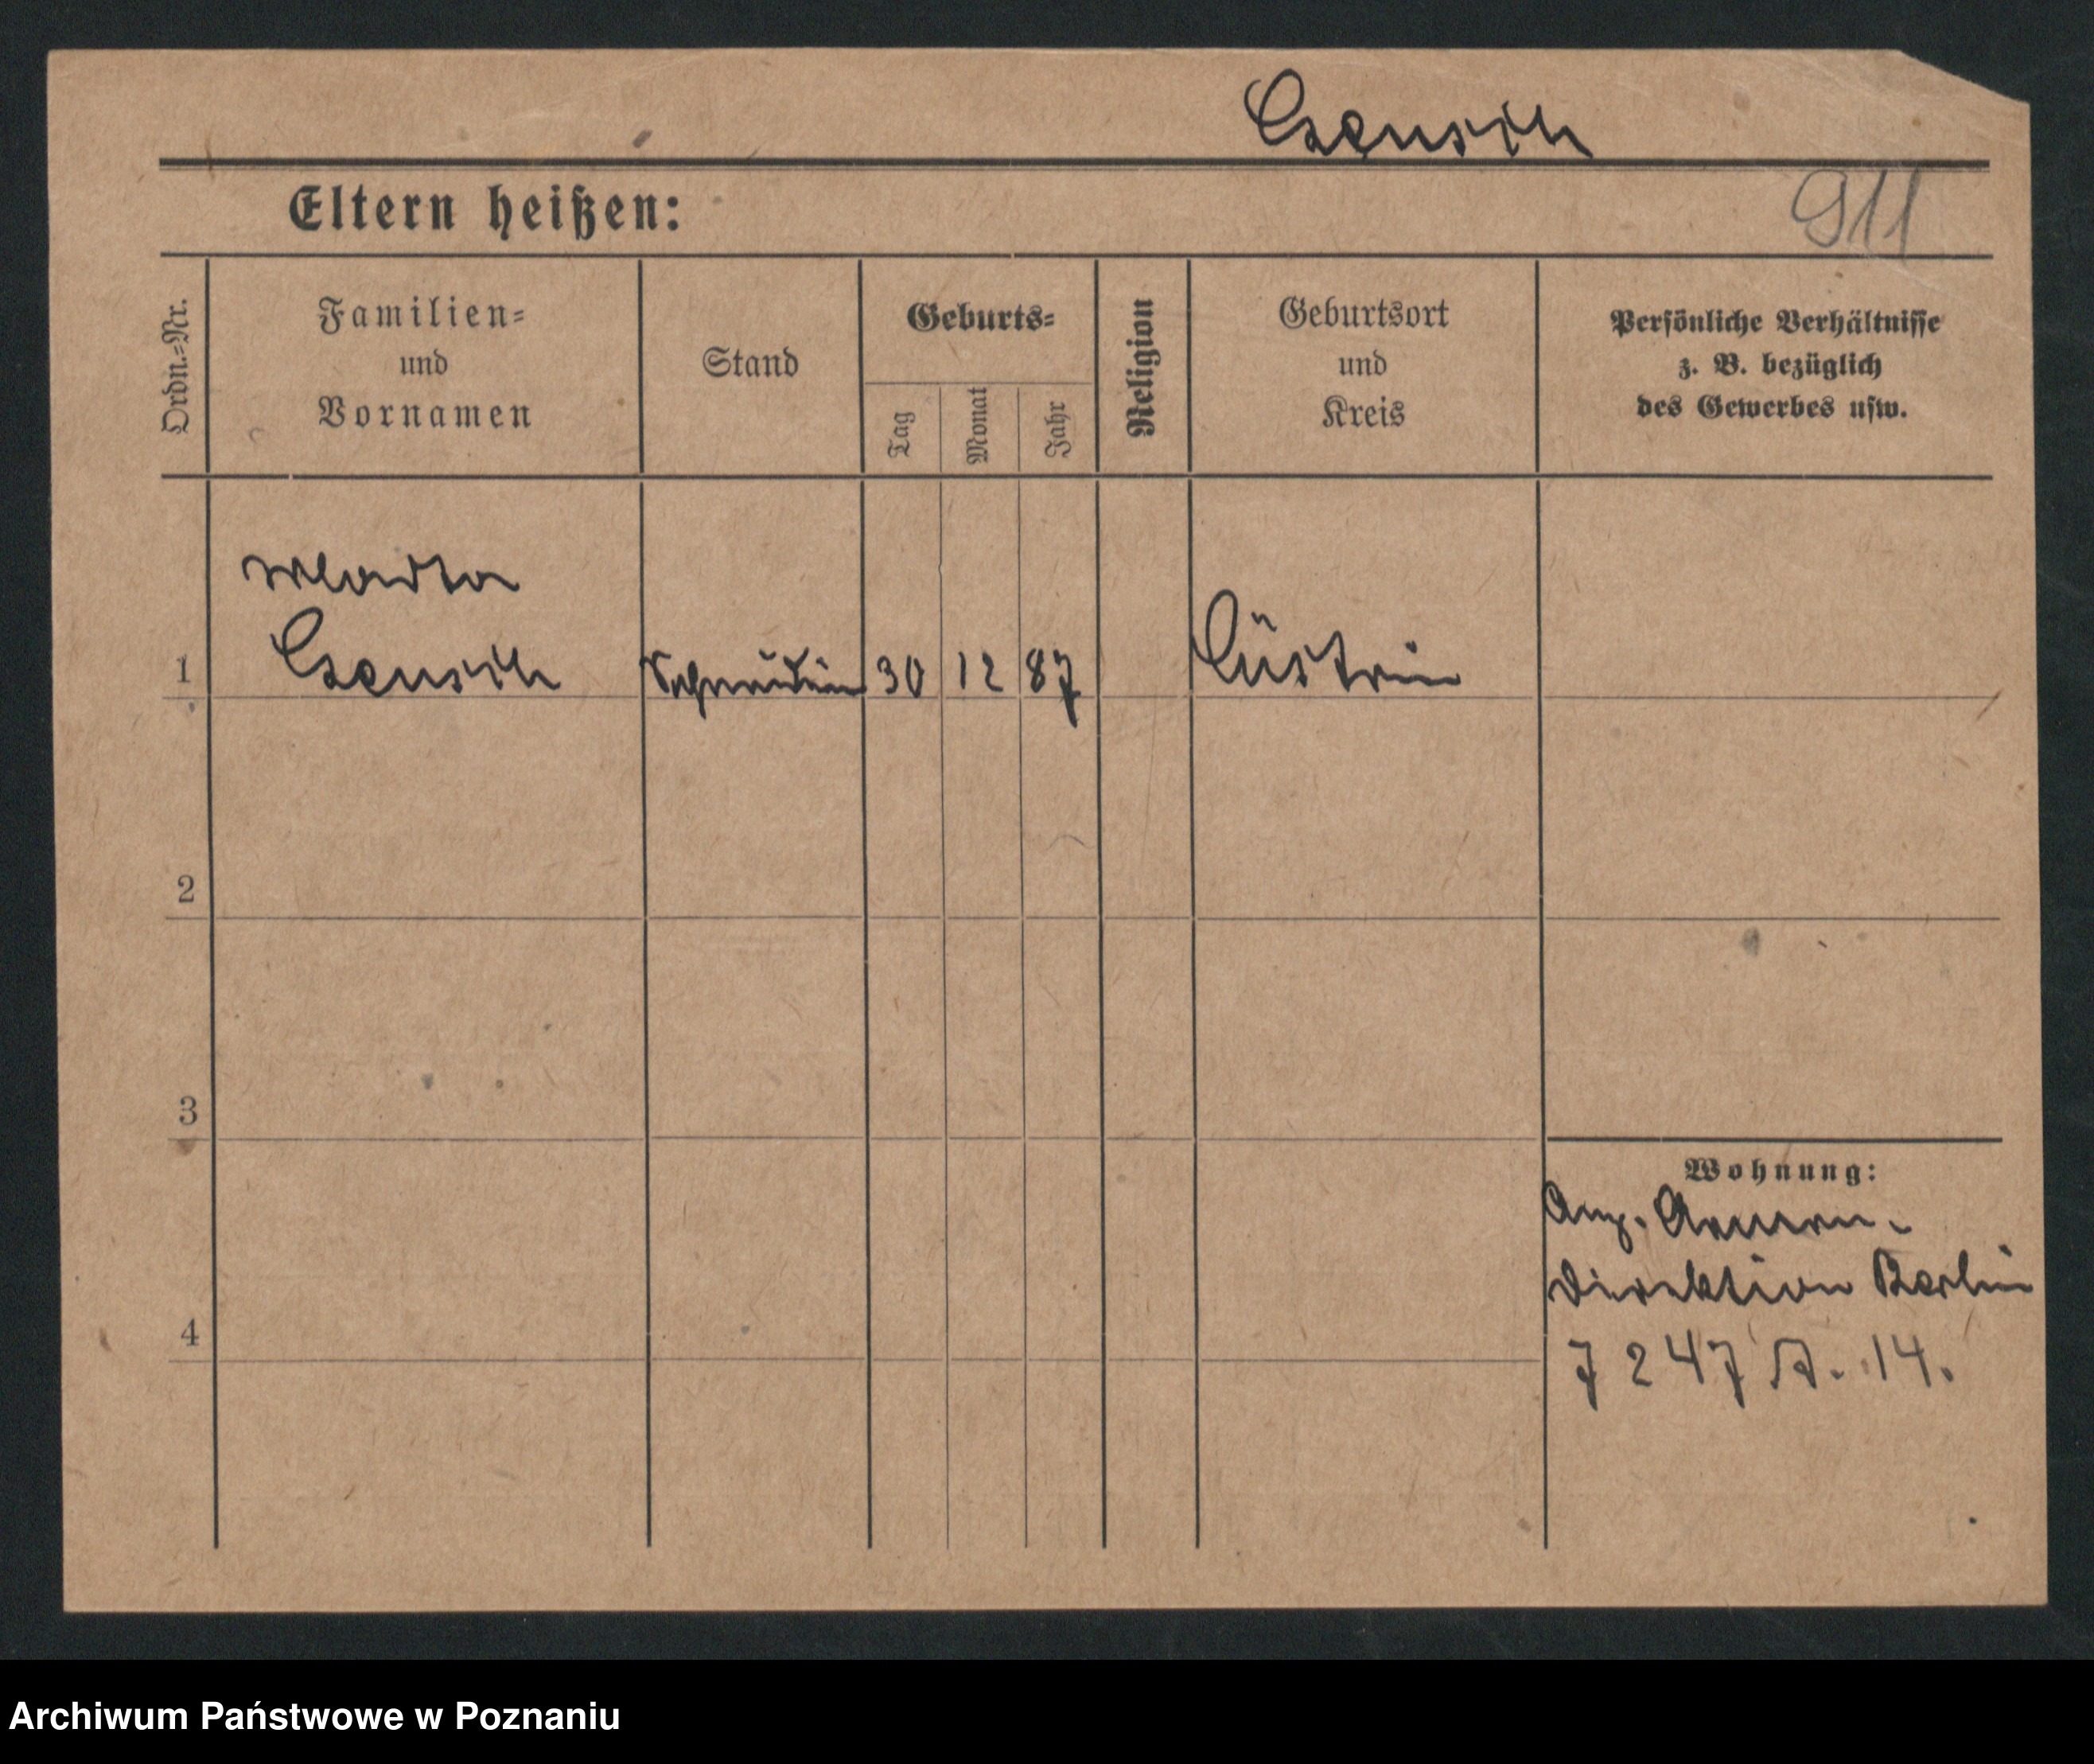 Csensich
911
Eltern heißen:
Ordn.-Nr.
Familien-
und
Vornamen
Stand
Geburts-
Tag
Monat
Jahr
Religion
Geburtsort
und
Kreis
Persönliche Verhältnisse
z. B. bezüglich
des Gewerbes usw.
Csensich
1
30
12
87
Cüstrin
2
3
Wohnung:
Anz. Armen-
direktion Berlin
4
7247 A. 14.
Archiwum Państwowe w Poznaniu